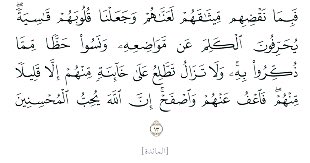 فَبِمَا نَقْضِهِم مِّيثَٰقَهُمْ لَعَنَّٰهُمْ وَجَعَلْنَا قُلُوبَهُمْ قَٰسِيَةً ۖ
يُحَرِّفُونَ ٱلْكَلِمَ عَن مَّوَاضِعِهِۦ ۙ وَنَسُوا۟ حَظًّا مِّمَّا
ذُكِّرُوا۟ بِهِۦ ۚ وَلَا تَزَالُ تَطَّلِعُ عَلَىٰ خَآئِنَةٍ مِّنْهُمْ إِلَّا قَلِيلًا
مِّنْهُمْ ۖ فَٱعْفُ عَنْهُمْ وَٱصْفَحْ ۚ إِنَّ ٱللَّهَ يُحِبُّ ٱلْمُحْسِنِينَ
١٣
[المائدة]